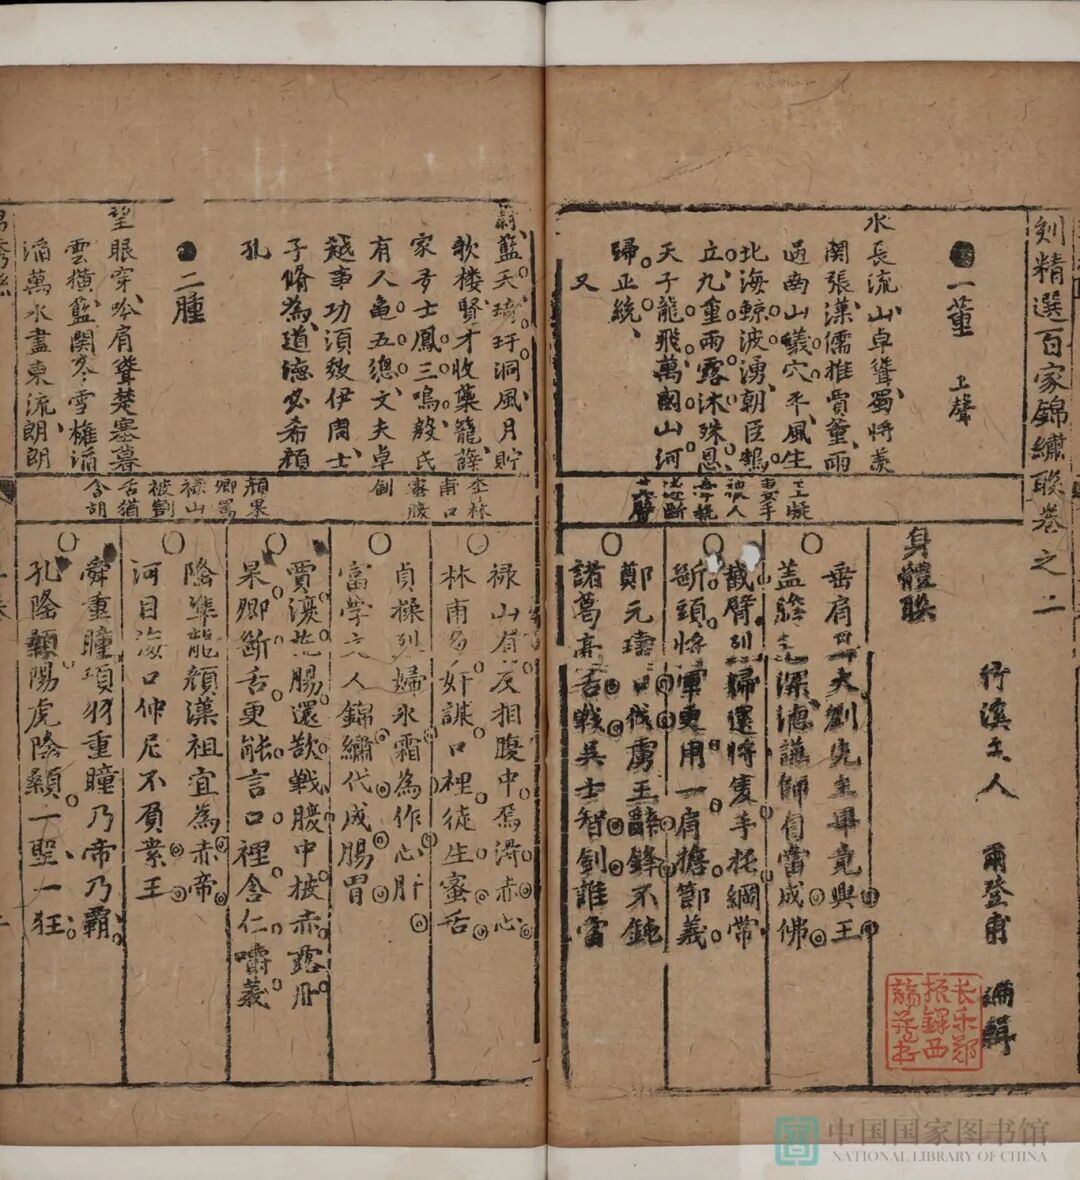 刻精選百家錦繡聯卷之二
人
爾登甫
編輯
一董
上聲
水長流山卓聳蜀將羨
関張漢儒推賈董雨
過南山蟻穴平風生
北海鯨波湧朝臣鵠
立九重雨露沐殊恩
天子龍飛萬國山河
歸正統
又
身體聯
垂肩大劉先主畢竟興王
蓋深德誰師自當成佛
截臂列婦還將隻手扥綱常
斷頭將軍更用一肩擔節義
鄭元璹口伐虜王辭鋒不鈍
諸葛亮舌戰吳士智劍誰當
長樂鄭
振鐸西
諦藏書
蔚藍天琦玕洞風月貯
歌楼賢才收藥籠薛
家多士鳳三鳴殷氏
有人龜五總文夫卓
越事功須效伊周士
子脩為道德必希顏
孔
二腫
望眼穿吟肩聳楚塞暮
雲橫藍関冬雪擁滔
滔萬水盡東流朗朗
李林
甫口
蜜腹
劍
顏杲
卿罵
祿山
被割
舌猶
含胡
祿山有反相腹中焉得赤心
林甫多奸謀口裡徒生蜜舌
貞操列婦氷霜為作心肝
富學文人錦繡代成腸胃
賈濊流腸還歃戰腹中披赤露丹
杲卿斷舌更能言口裡含仁嚼義
隆準龍顏漢祖宜為赤帝
河目海口仲尼不負素王
舜重瞳項羽重瞳乃帝乃霸
孔隆顙陽虎隆顙一聖一狂
中国国家图书馆
NATIONAL LIBRARY OF CHINA